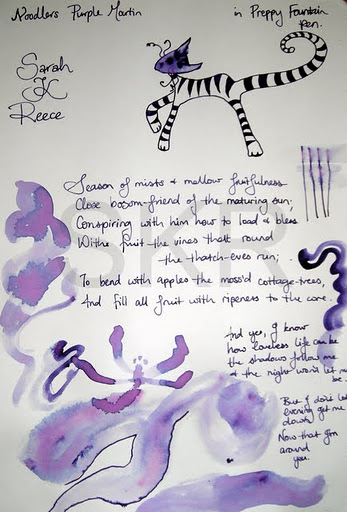 Noodlers Purple Martin
in Preppy Fountain
Pen.
Sarah
K
Reece
Season of mists & mellow fruitfulness
Close bosom-friend of the maturing sun;
Conspiring with him how to load & bless
With fruit the vines that round
the thatch-eves run;
To bend with apples the moss'd cottage-trees,
And fill all fruit with ripeness to the core.
And yes, I know
how loveless life can be
the shadows follow me
& the night won't let me
be.
But I don't let
evening get me
down
Now that I'm
around
you.
SKR